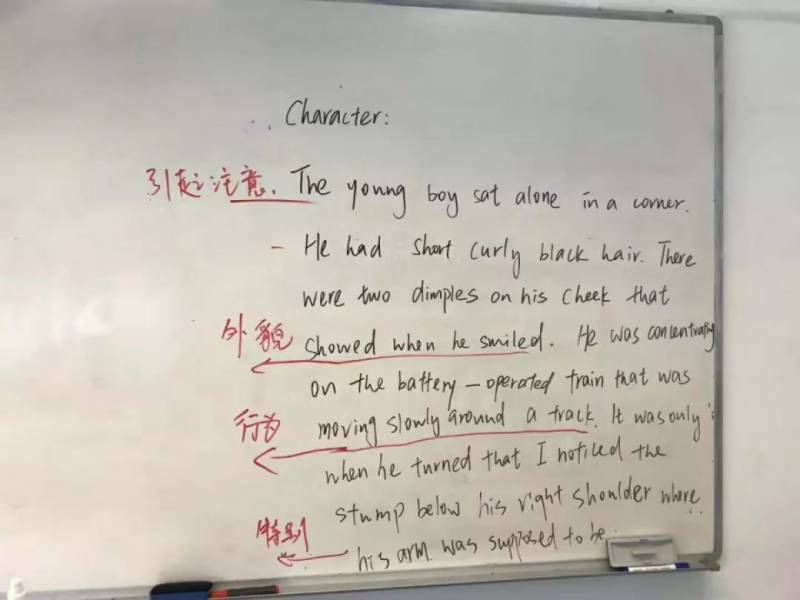 Character:
引起注意. The young boy sat alone in a corner.
- He had short curly black hair. There
were two dimples on his cheek that
外貌 showed when he smiled. He was concentrating
on the battery-operated train that was
行为 moving slowly around a track. It was only
when he turned that I noticed the
stump below his right shoulder where
特别 his arm was supposed to be.